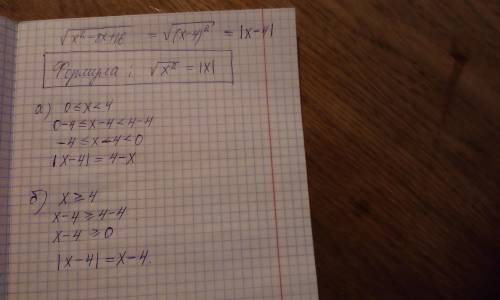 √x²-8x+16 = √(x-4)² = |x-4|
Формула: √x² = |x|
а) 0≤x<4
0-4≤x-4<4-4
-4≤x-4<0
|x-4|=4-x
б) x≥4
x-4≥4-4
x-4≥0
|x-4|=x-4.